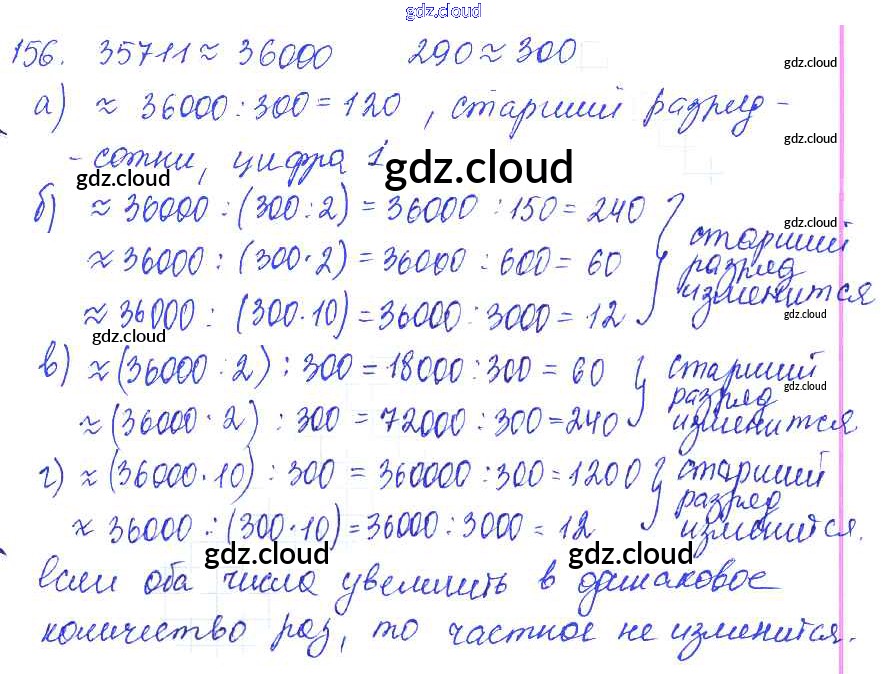 gdz.cloud
156. 35711 ≈ 36000 290 ≈ 300
gdz.cloud
а) ≈ 36000 : 300 = 120 , старший разряд -
gdz.cloud
- сотни, цифра 1
gdz.cloud
gdz.cloud
б) ≈ 36000 : (300 : 2) = 36000 : 150 = 240
gdz.cloud
≈ 36000 : (300 · 2) = 36000 : 600 = 60
старший
разряд
изменится
≈ 36000 : (300 · 10) = 36000 : 3000 = 12
gdz.cloud
gdz.cloud
в) ≈ (36000 : 2) : 300 = 18000 : 300 = 60
старший
gdz.cloud
разряд
изменится
≈ (36000 · 2) : 300 = 72000 : 300 = 240
г) ≈ (36000 · 10) : 300 = 360000 : 300 = 1200
старший
разряд
изменится.
≈ 36000 : (300 · 10) = 36000 : 3000 = 12
gdz.cloud
gdz.cloud
Если оба числа увеличить в одинаковое
количество раз, то частное не изменится.